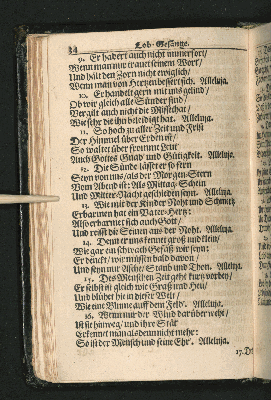 34 Lob-Gesänge.
9. Er hadert auch nicht immerfort/
Wenn man nur trauet seinem Wort/
Und hält den Zorn nicht ewiglich/
Wenn man von Hertzen bessert sich. Alleluja.
10. Er handelt gern mit uns gelind/
Ob wir gleich alle Sünder sind/
Vergilt auch nicht die Missethat/
Wie sehr die ihn beleidigt hat. Alleluja.
11. So hoch zu aller Zeit und Frist
Der Himmel über Erden ist/
So waltet über fromme Leut
Auch Gottes Gnad und Gütigkeit. Alleluja.
12. Die Sünde lässet er so fern
Seyn von uns/ als der Morgen-Stern
Vom Abend ist: Als Mittag-Schein
Und Mitter-Nacht geschieden seyn. Alleluja.
13. Wie mit der Kinder Noht und Schmertz
Erbarmen hat ein Vater-Hertz:
Also erbarmet sich auch Gott/
Und reisst die Seinen aus der Noht. Alleluja.
14. Denn er uns kennet groß und klein/
Wie gar ein schwach Gefäß wir seyn:
Er denckt/ wir müssen bald davon/
Und seyn nur Asche/ Staub und Thon. Alleluja.
15. Des Menschen Zeit geht kurtz vorbey/
Er selbst ist gleich wie Graß und Heu/
Und blühet hie in dieser Welt/
Wie eine Blume auff dem Feld. Alleluja.
16. Wenn nur der Wind darüber weht/
Ist sie hinweg/ und ihre Stät
Erkennet man alsdenn nicht mehr:
So ist der Mensch und seine Ehr. Alleluja.
17. De